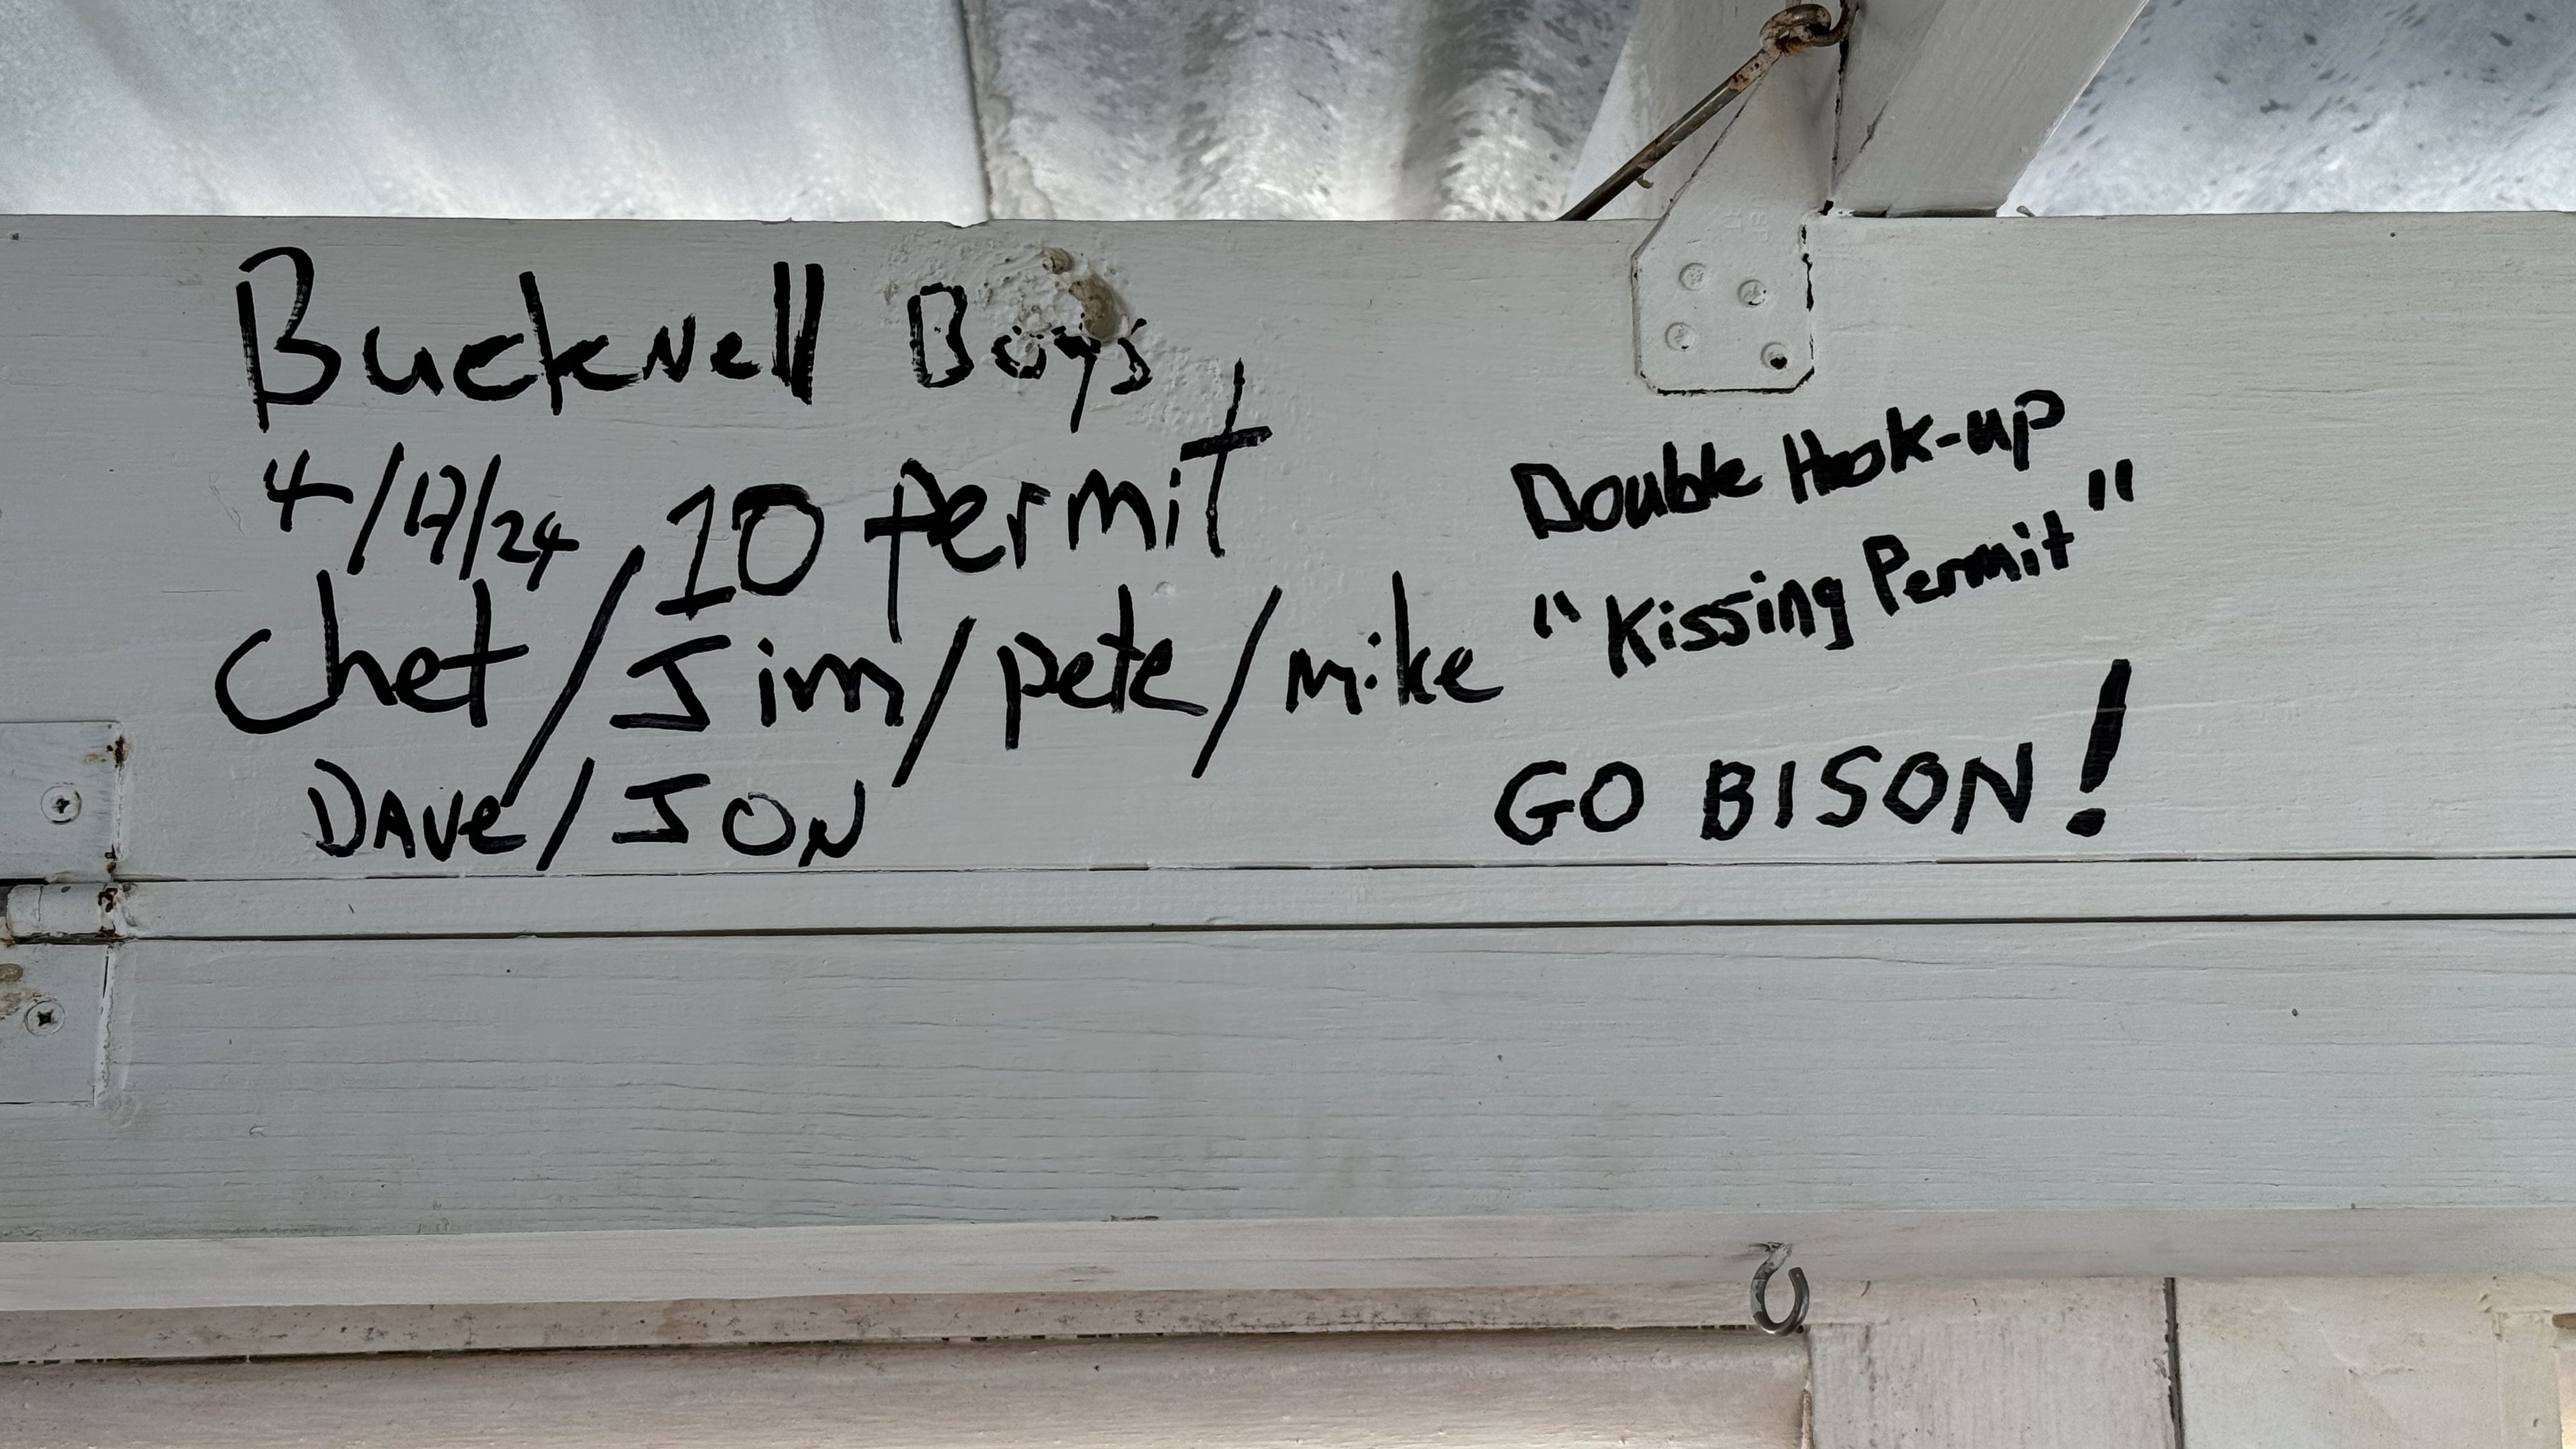 Bucknell Boys
4/17/24 10 permit
Chet/Jim/pete/mike
DAVe/JON
Double Hook-up
"Kissing Permit"
GO BISON!